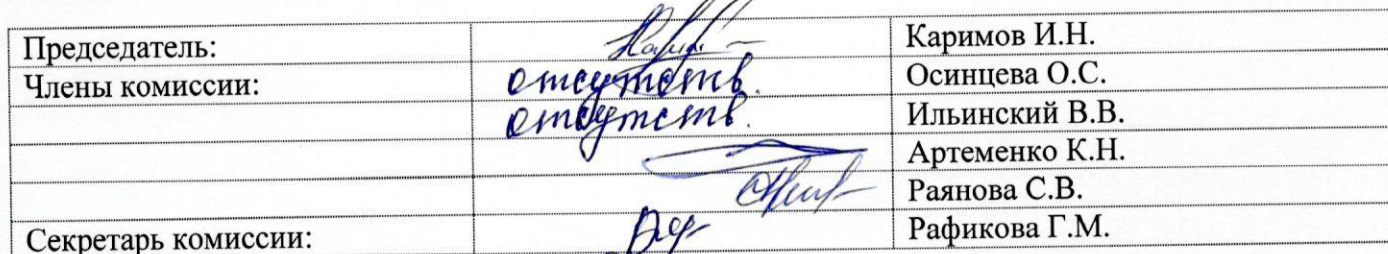 Председатель: Каримов И.Н.
Члены комиссии: отсутств. Осинцева О.С.
отсутств. Ильинский В.В.
Артеменко К.Н.
Раянова С.В.
Секретарь комиссии: Рафикова Г.М.